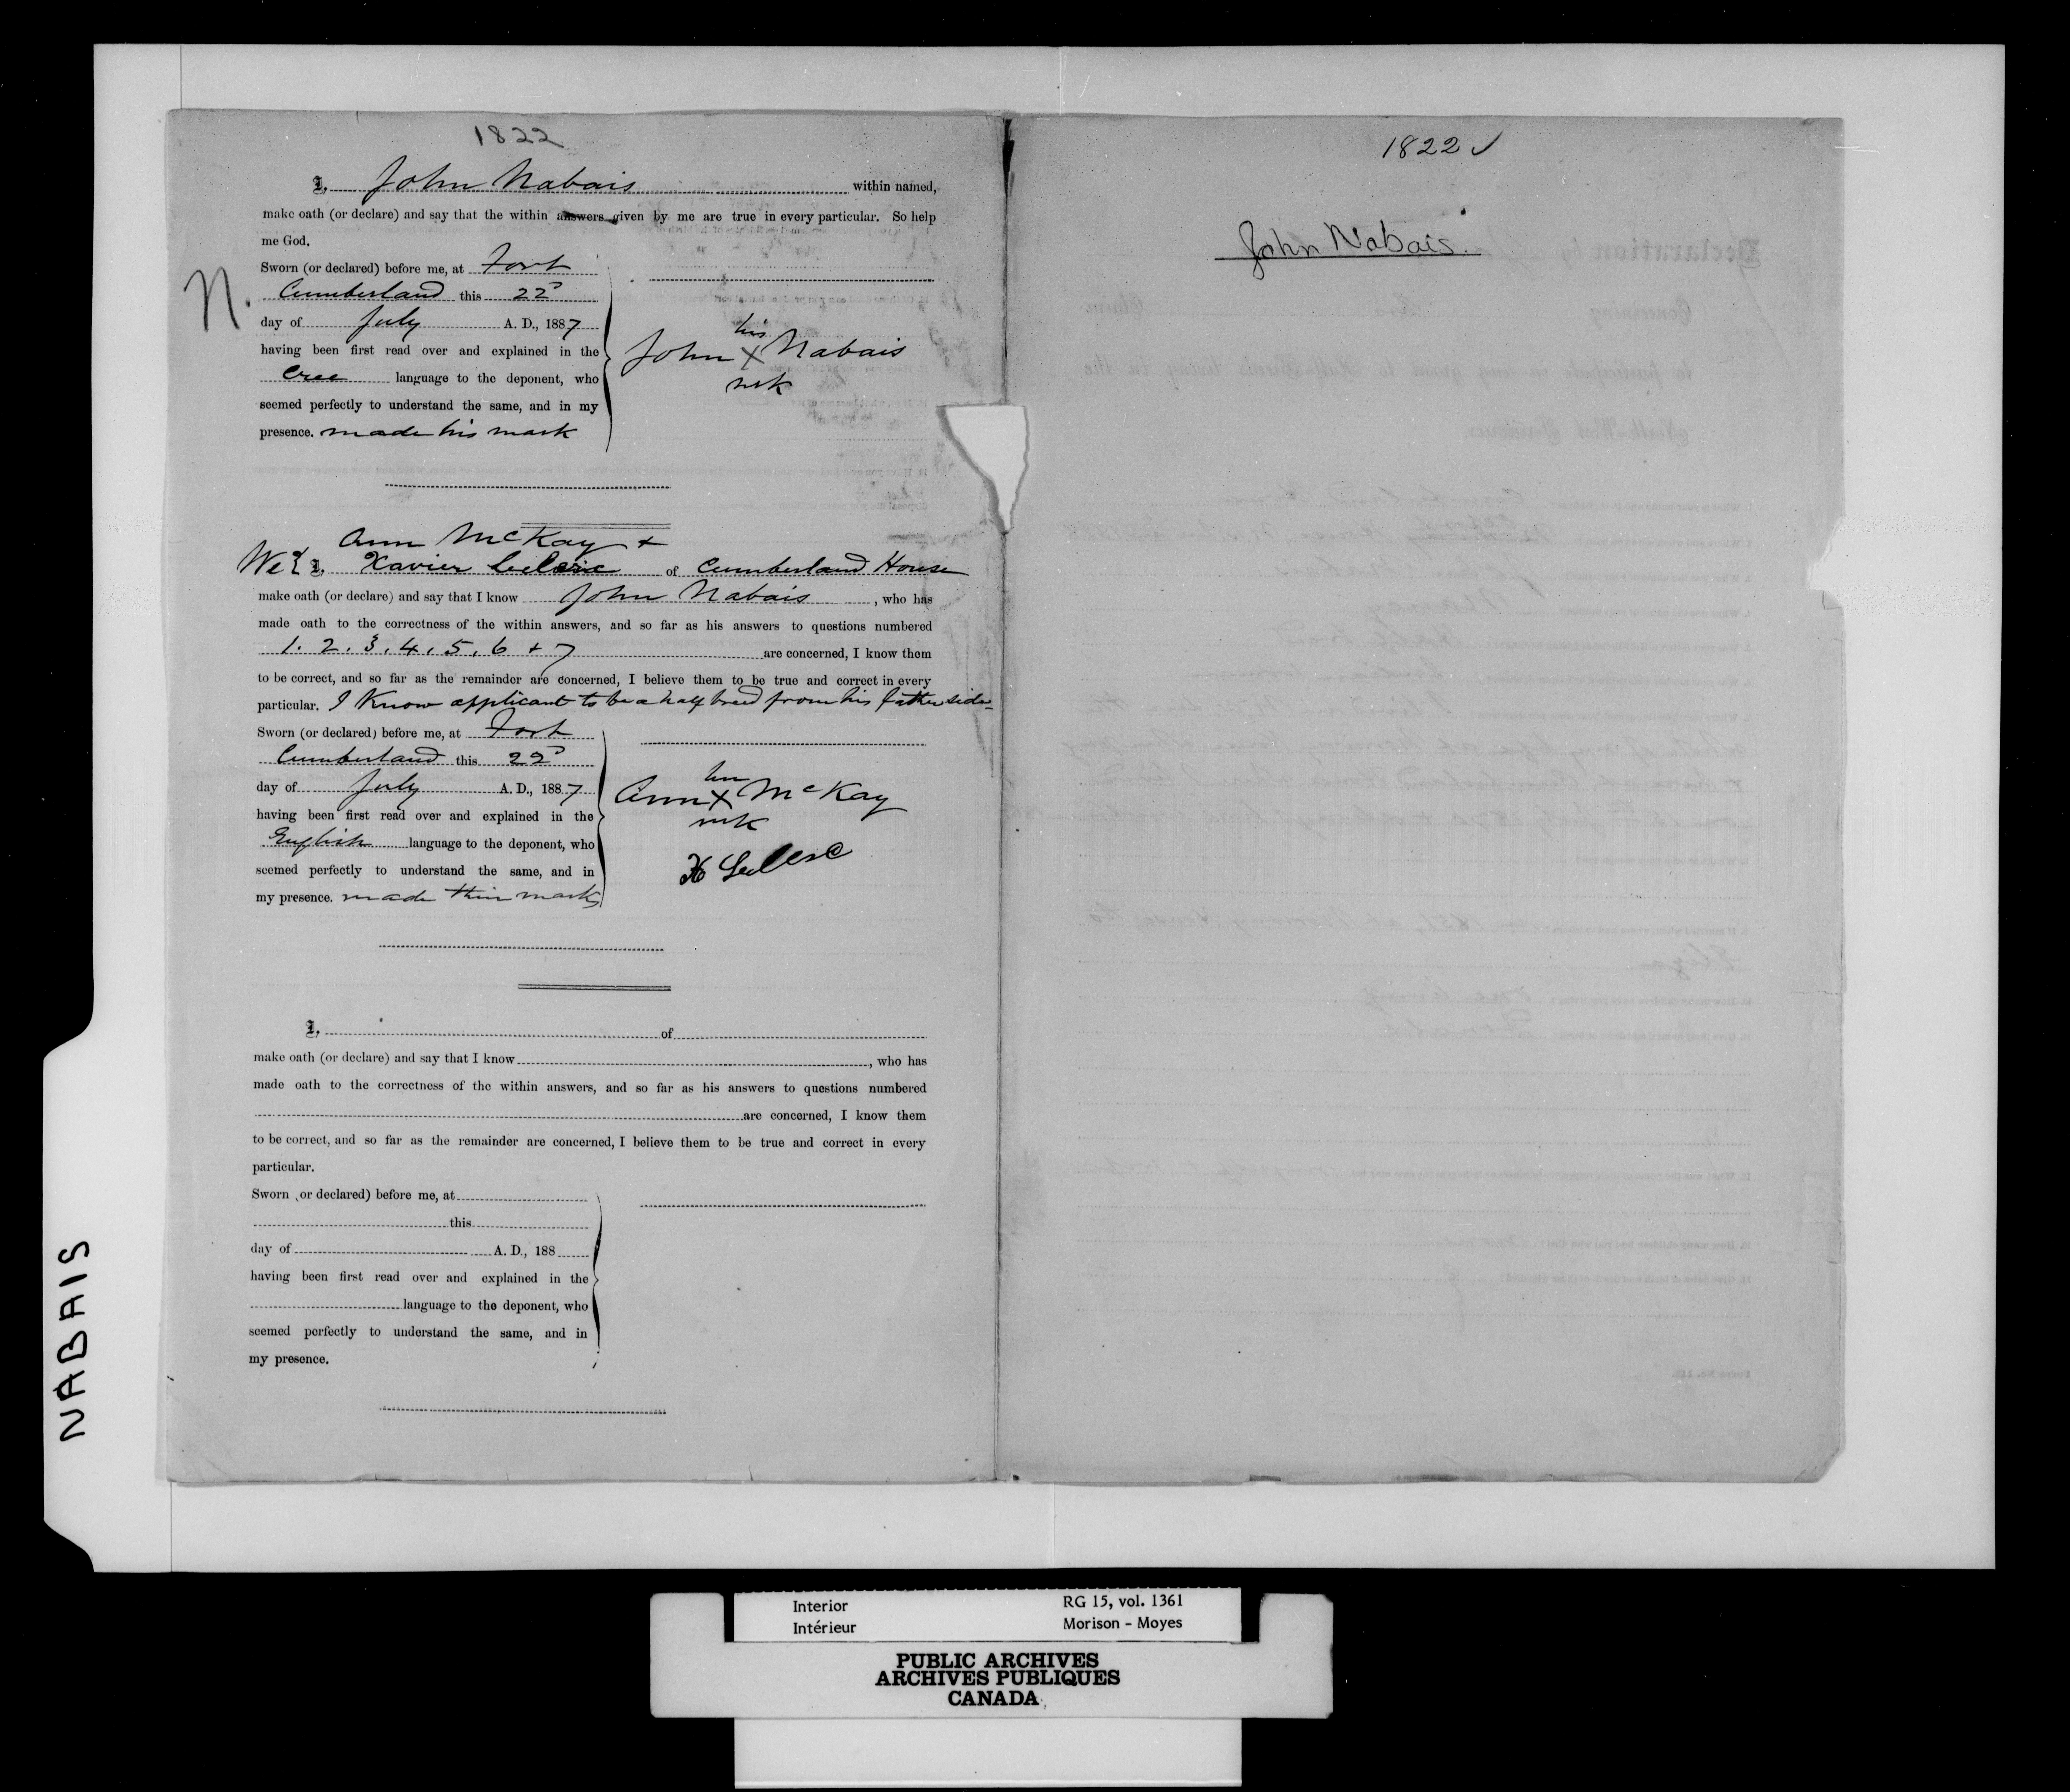 1822
I, John Nabais within named,
make oath (or declare) and say that the within answers given by me are true in every particular. So help
me God.
Sworn (or declared) before me, at Fort
Cumberland this 22D
day of July A. D., 1887
having been first read over and explained in the
Cree language to the deponent, who
seemed perfectly to understand the same, and in my
presence. made his mark
N.
his
John X Nabais
mk
Ann McKay +
We { I, Xavier Leclerc of Cumberland House
make oath (or declare) and say that I know John Nabais, who has
made oath to the correctness of the within answers, and so far as his answers to questions numbered
1. 2. 3. 4. 5. 6 + 7 are concerned, I know them
to be correct, and so far as the remainder are concerned, I believe them to be true and correct in every
particular. I Know applicant to be a half breed from his father side
Sworn (or declared) before me, at Fort
Cumberland this 22D
day of July A. D., 1887
having been first read over and explained in the
English language to the deponent, who
seemed perfectly to understand the same, and in
my presence. made their marks
her
Ann X McKay
mk
X Leclerc
I, of
make oath (or declare) and say that I know , who has
made oath to the correctness of the within answers, and so far as his answers to questions numbered
are concerned, I know them
to be correct, and so far as the remainder are concerned, I believe them to be true and correct in every
particular.
Sworn (or declared) before me, at
this
day of A. D., 188
having been first read over and explained in the
language to the deponent, who
seemed perfectly to understand the same, and in
my presence.
1822 ✓
John Nabais.
NABAIS
Interior RG 15, vol. 1361
Intérieur Morison - Moyes
PUBLIC ARCHIVES
ARCHIVES PUBLIQUES
CANADA